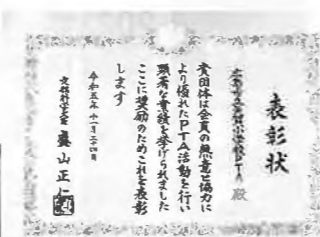 表彰状
小学校PTA 殿
貴団体は会員の熱意と協力に
より優れたPTA活動を行い
顕著な業績を挙げられました
ここに奨励のためこれを表彰
します
令和五年十一月二十四日
文部科学大臣 盛山正仁